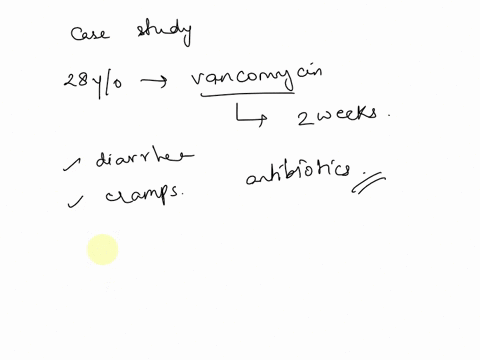 Case study
28y/o → vancomycin
↳ 2 weeks.
✓ diarrhee
✓ cramps.
antibiotics.